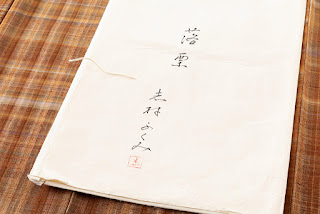 落栗
志村ふくみ